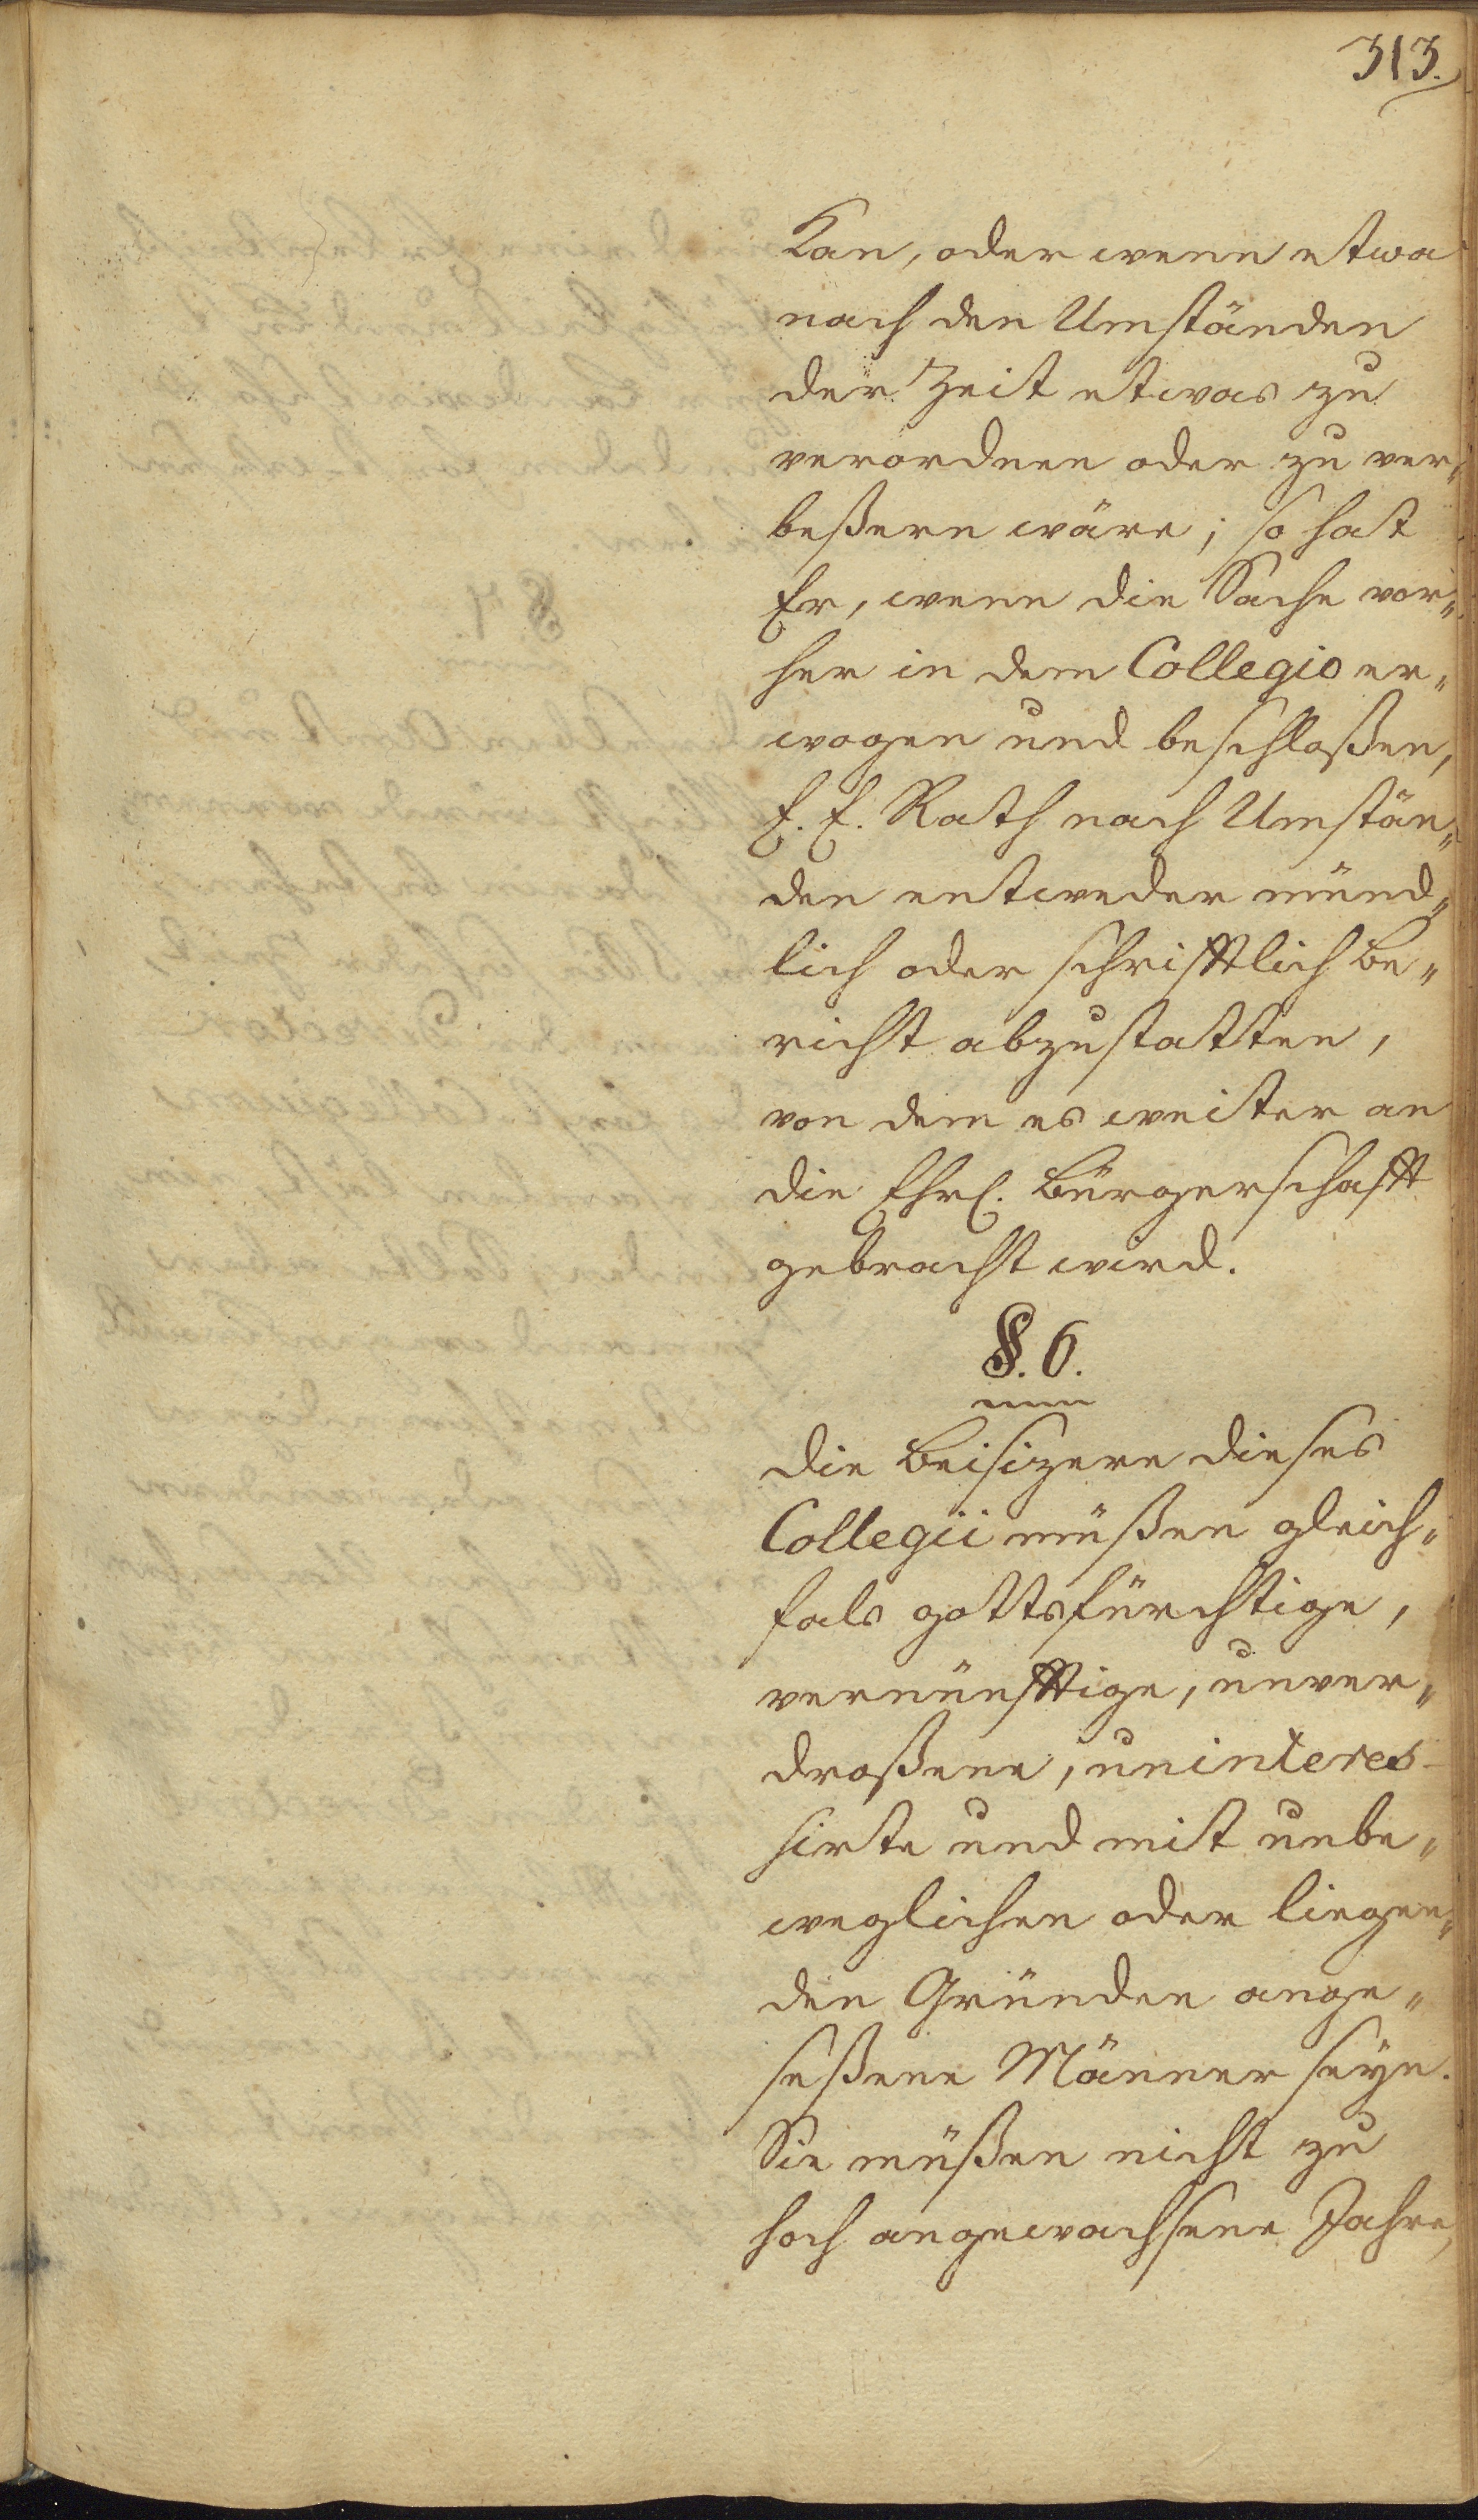 313.
Kan, oder wenn etwa
nach den Umständen
der Zeit etwas zu
verordnen oder zu ver„
beßern wäre; so hat
Er, wenn die Sache vor„
her in dem Collegio er„
wogen und beschloßen,
E. E. Rath nach Umstän„
den entweder münd„
lich oder schrifftlich Be„
richt abzustatten,
von dem es weiter an
die Ehrl. Bürgerschafft
gebracht wird.
§. 6.
Die Beisizere dieses
Collegii müßen gleich„
fals gottsfürchtige,
vernünfftige, unver„
droßene, uninteres-
sirte und mit unbe„
weglichen oder liegen„
den Gründen ange„
seßene Männer seyn.
Sie müßen nicht zu
hoch angewachsene Jahre,